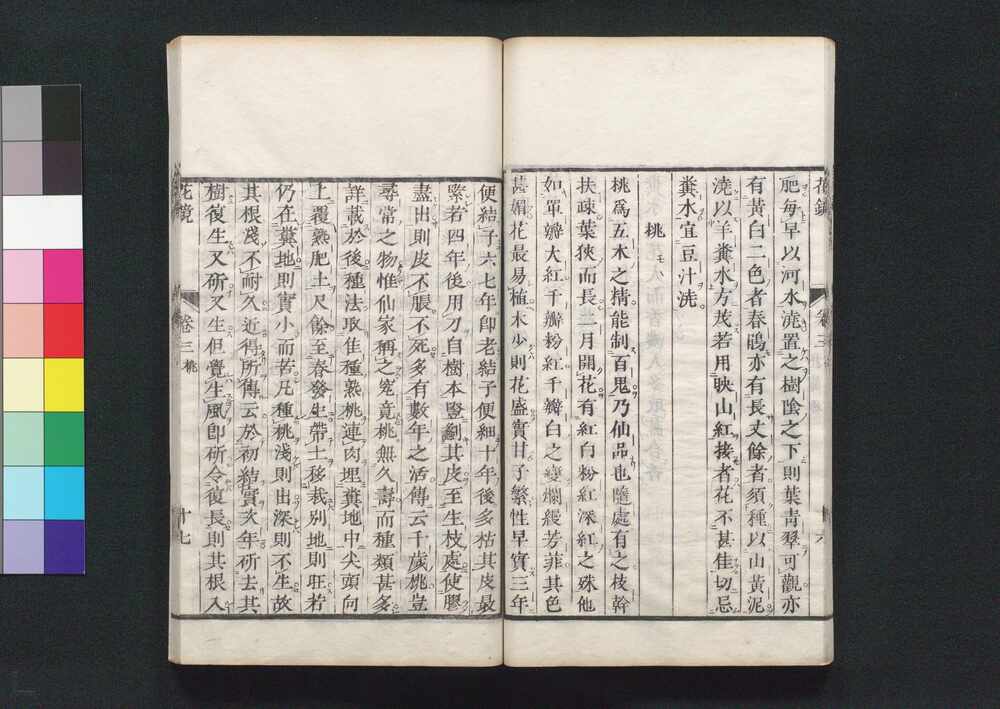 花鏡
卷三
六
肥每早以河水澆置之樹陰之下則葉青翠可觀亦
有黃白二色者春鵑亦有長丈餘者須種以山黃泥
澆以羊糞水方茂若用映山紅接者花不甚佳切忌
糞水宜豆汁洗
桃
桃爲五木之精能制百鬼乃仙品也隨處有之枝幹
扶疎葉狹而長二三月開花有紅白粉紅深紅之殊他
如單瓣大紅千瓣粉紅千瓣白之變爛縵芳菲其色
甚媚花最易植木少則花盛實甘子繁性早實三年
便結子六七年卽老結子便細十年後多枯其皮最
緊若四年後用刀自樹本豎劃其皮至生枝處使膠
盡出則皮不脹不死多有數年之活傳云千歲桃豈
尋常之物惟仙家稱之究竟桃無久壽而種類甚多
詳載於後種法取佳種熟桃連肉埋糞地中尖頭向
上覆熟肥土尺餘至春發生帶土移栽別地則旺若
仍在糞地則實小而苦凡種桃淺則出深則不生故
其根淺不耐久近得所傳云於初結實次年斫去其
樹復生又斫又生但覺生風卽斫令復長則其根入
花鏡
卷三 桃
十七